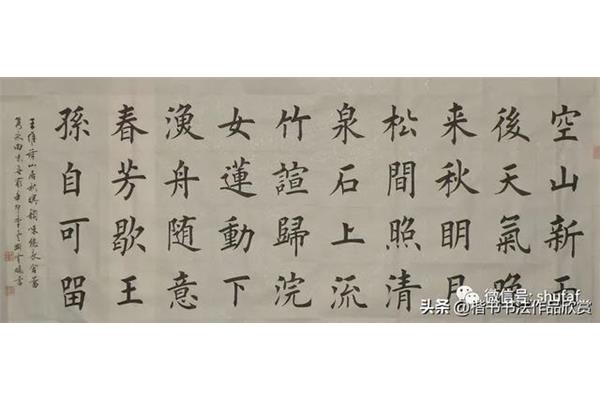 空山新雨
後天氣晚
来秋眀月
松間照清
泉石上流
竹諠歸浣
女蓮動下
漁舟随意
春芳歇王
孫自可留
王維詩山居秋暝
微信号: shufaf
头条 @楷书书法作品欣赏